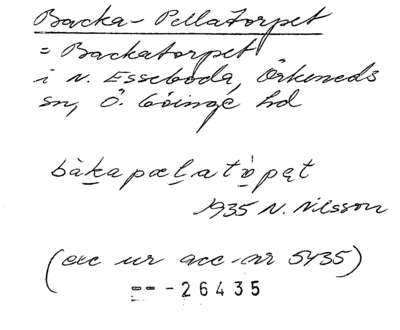 Backa-Pellatorpet
= Backatorpet
i N. Esseboda, Örkeneds
sn, Ö. Göinge hd
bàka pæḷatòpət
1935 N. Nilsson
(exc ur acc. nr 5435)
-- -26435